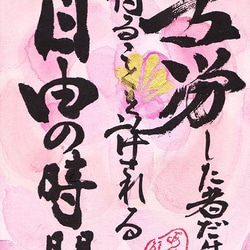 苦労した者だけ
得ることを許される
自由の時間